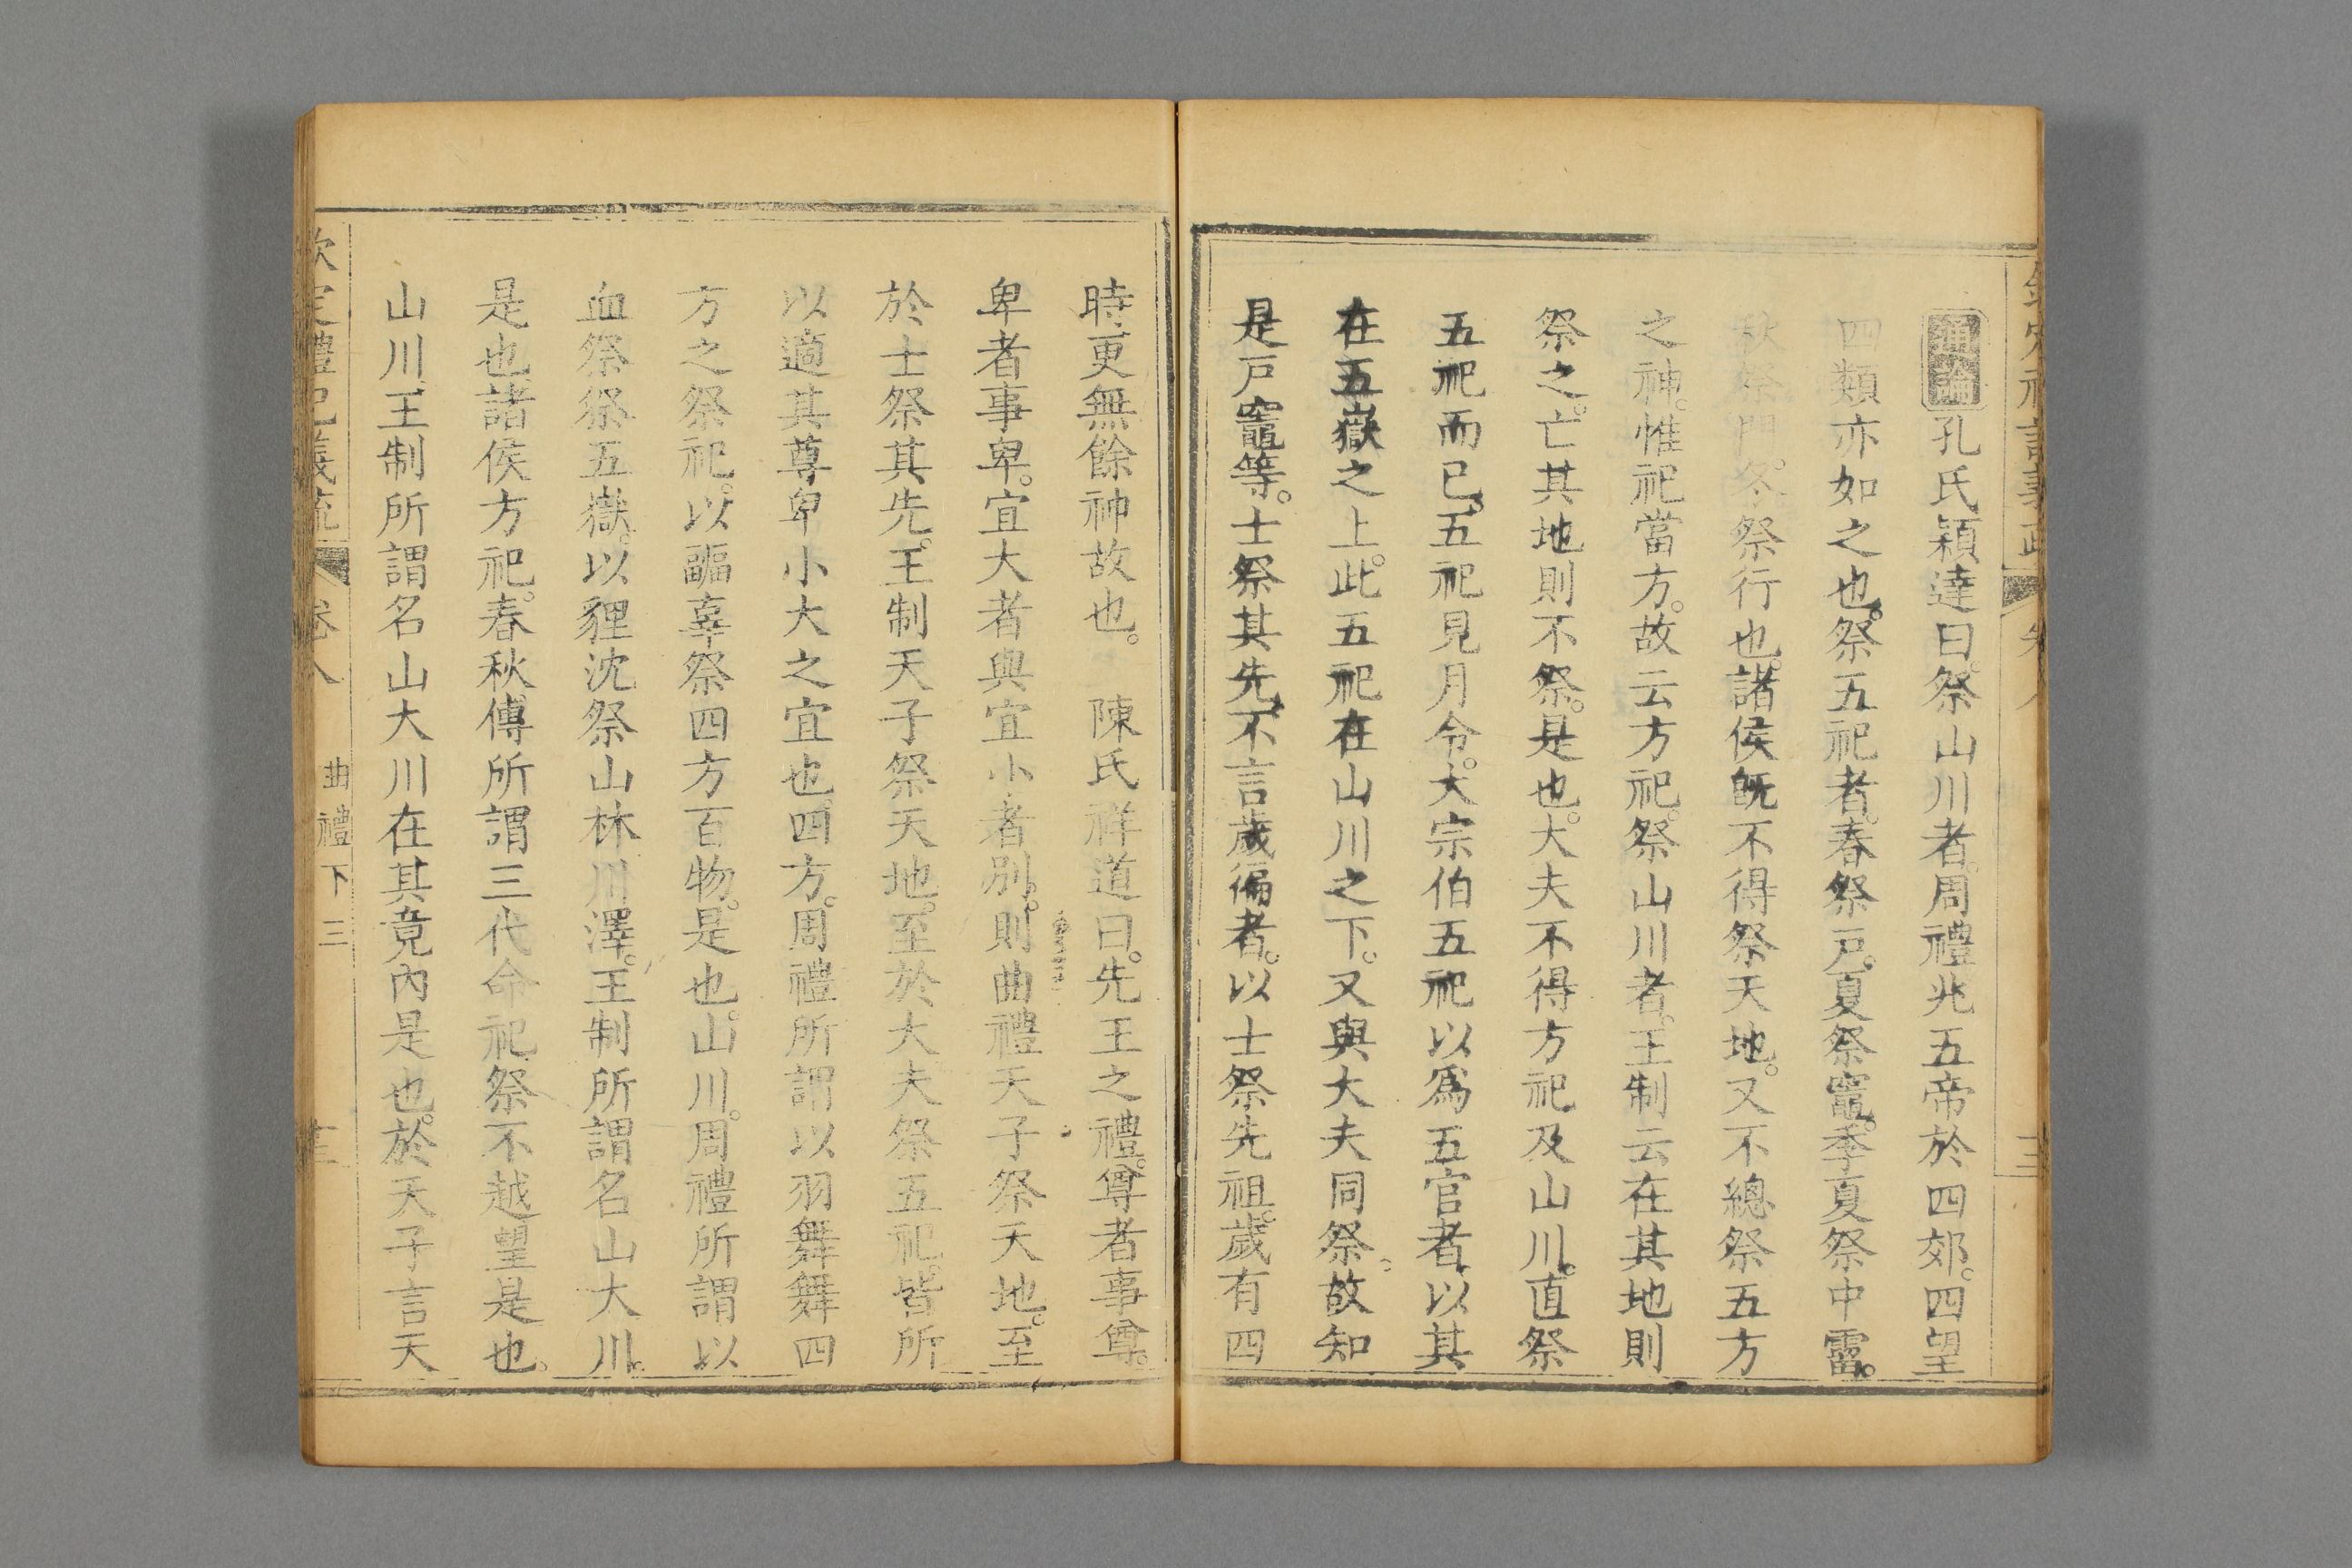 通論孔氏穎達曰。祭山川者。周禮兆五帝於四郊。四望
四類亦如之也。祭五祀者。春祭戸。夏祭竈。季夏祭中霤。
秋祭門。冬祭行也。諸侯旣不得祭天地。又不總祭五方
之神。惟祀當方。故云方祀。祭山川者。王制云在其地則
祭之。亡其地則不祭。是也。大夫不得方祀及山川。直祭
五祀而已。五祀見月令。大宗伯五祀以爲五官者。以其
在五嶽之上。此五祀在山川之下。又與大夫同祭。故知
是戸竈等。士祭其先。不言歲徧者。以士祭先祖。歲有四
時。更無餘神故也。陳氏祥道曰。先王之禮。尊者事尊。
卑者事卑。宜大者與宜小者別。則曲禮天子祭天地。至
於士祭其先。王制天子祭天地。至於大夫祭五祀。皆所
以適其尊卑小大之宜也。四方。周禮所謂以羽舞舞四
方之祭祀。以疈辜祭四方百物。是也。山川。周禮所謂以
血祭祭五嶽。以貍沈祭山林川澤。王制所謂名山大川。
是也。諸侯方祀。春秋傳所謂三代命祀。祭不越望是也。
山川。王制所謂名山大川在其竟內是也。於天子言天
欽定禮記義疏 卷八 曲禮下三